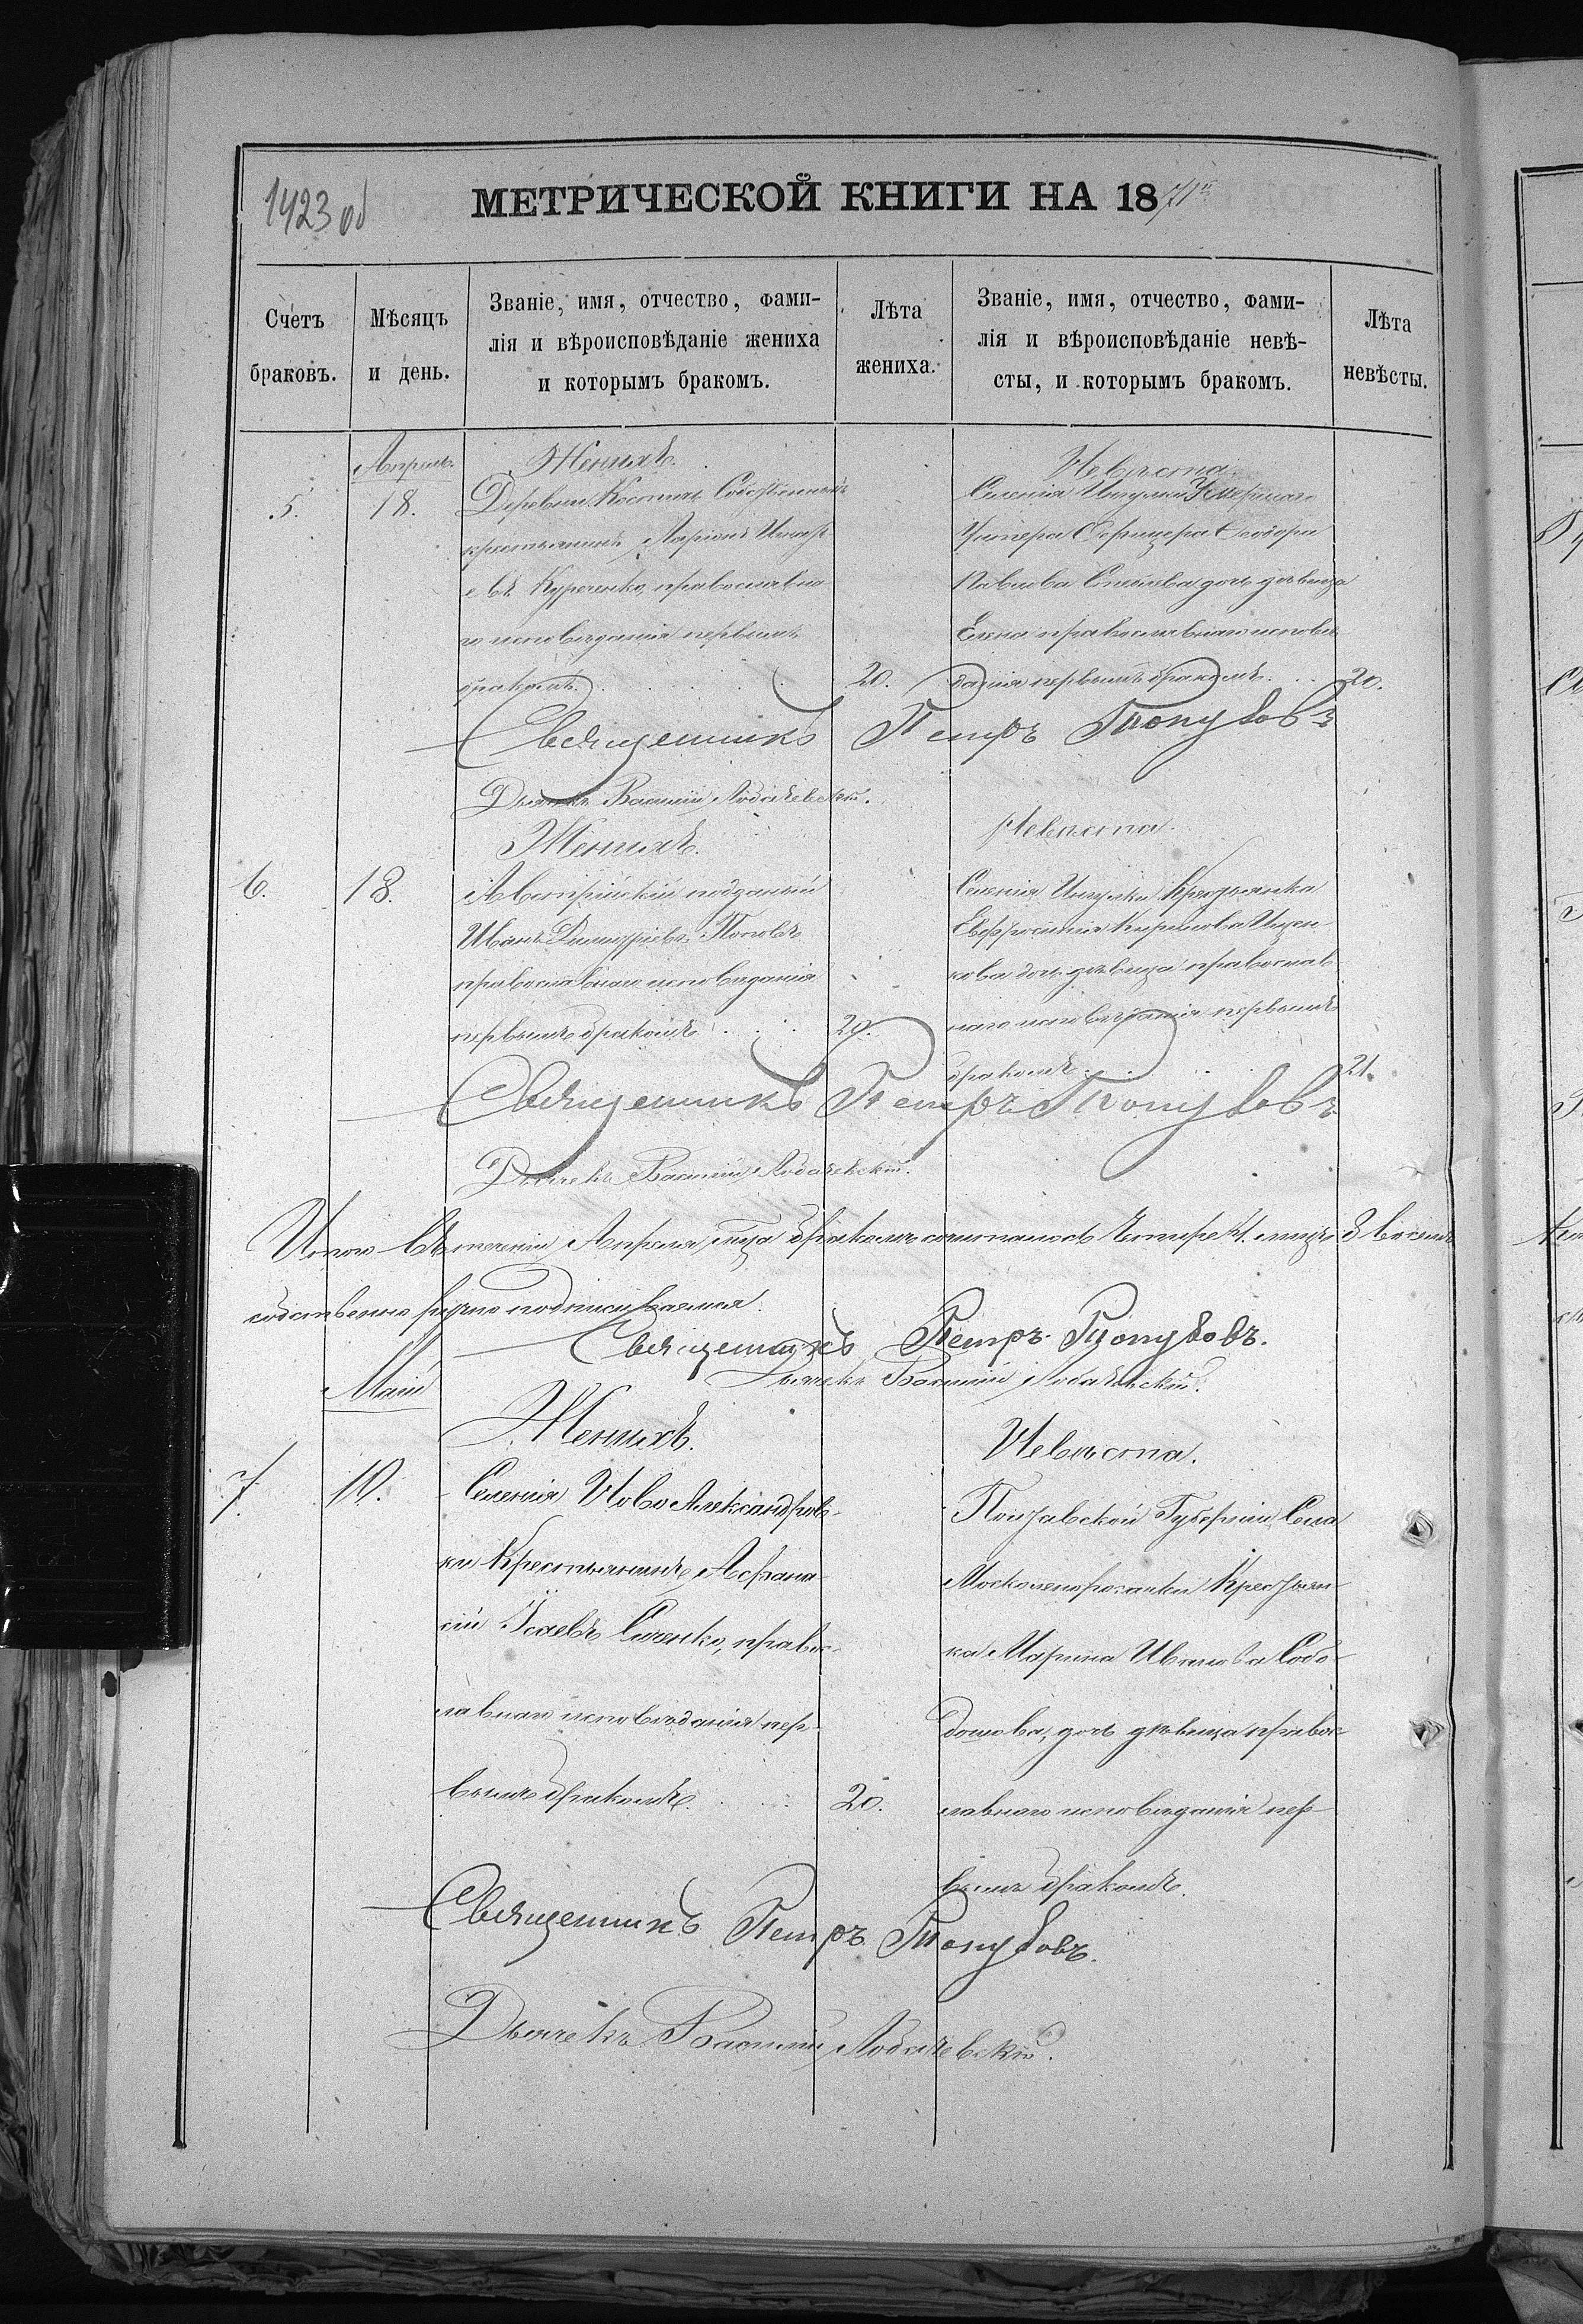 1423 об
МЕТРИЧЕСКОЙ КНИГИ НА 1871
Счетъ браковъ.
Мѣсяцъ и день.
Званіе, имя, отчество, фами-
лія и вѣроисповѣданіе жениха
и которымъ бракомъ.
Лѣта жениха.
Званіе, имя, отчество, фами-
лія и вѣроисповѣданіе невѣ-
сты, и которымъ бракомъ.
Лѣта невѣсты.
Апрель
5.
18.
Женихъ.
Деревни
крестьянинъ Ларіонъ
евъ Куреченко, православна
го исповѣданія первымъ
бракомъ.
20.
Невѣста
Селенія Ингулки Умершаго
Унтера Офицера Өеодора
Павлова дочь дѣвица
Елена православнаго исповѣ
данія первымъ бракомъ
20.
Священникъ Петръ
Дьячекъ Василій Лобачевскій.
6.
18.
Женихъ.
Австрійскій подданый
Иванъ Димитріевъ Поповъ
православнаго исповѣданія
первымъ бракомъ
29.
Невѣста.
Селенія Ингулки Крестьянка
Евфросинія Кирилова Ищен
кова дочь дѣвица православ
наго исповѣданія первымъ
бракомъ
21.
Священникъ Петръ
Дьячекъ Василій Лобачевскій.
Итого въ теченіи Апреля м-ца бракомъ сочиталось четыре 4. лицъ 8 восемь
собственно ручно подписываемся.
Священникъ Петръ
Дьячекъ Василій Лобачевскій.
Май
7.
10.
Женихъ.
Селенія НовоАлександров-
ки Крестьянинъ Афана
сій Исаевъ Сиченко, правос-
лавнаго исповѣданія пер-
вымъ бракомъ.
20.
Невѣста.
Полтавской Губерніи Села
Крестьян-
ка Марина Иванова
дочь дѣвица правос
лавнаго исповѣданія пер-
вымъ бракомъ.
Священникъ Петръ
Дьячекъ Василій Лобачевскій.